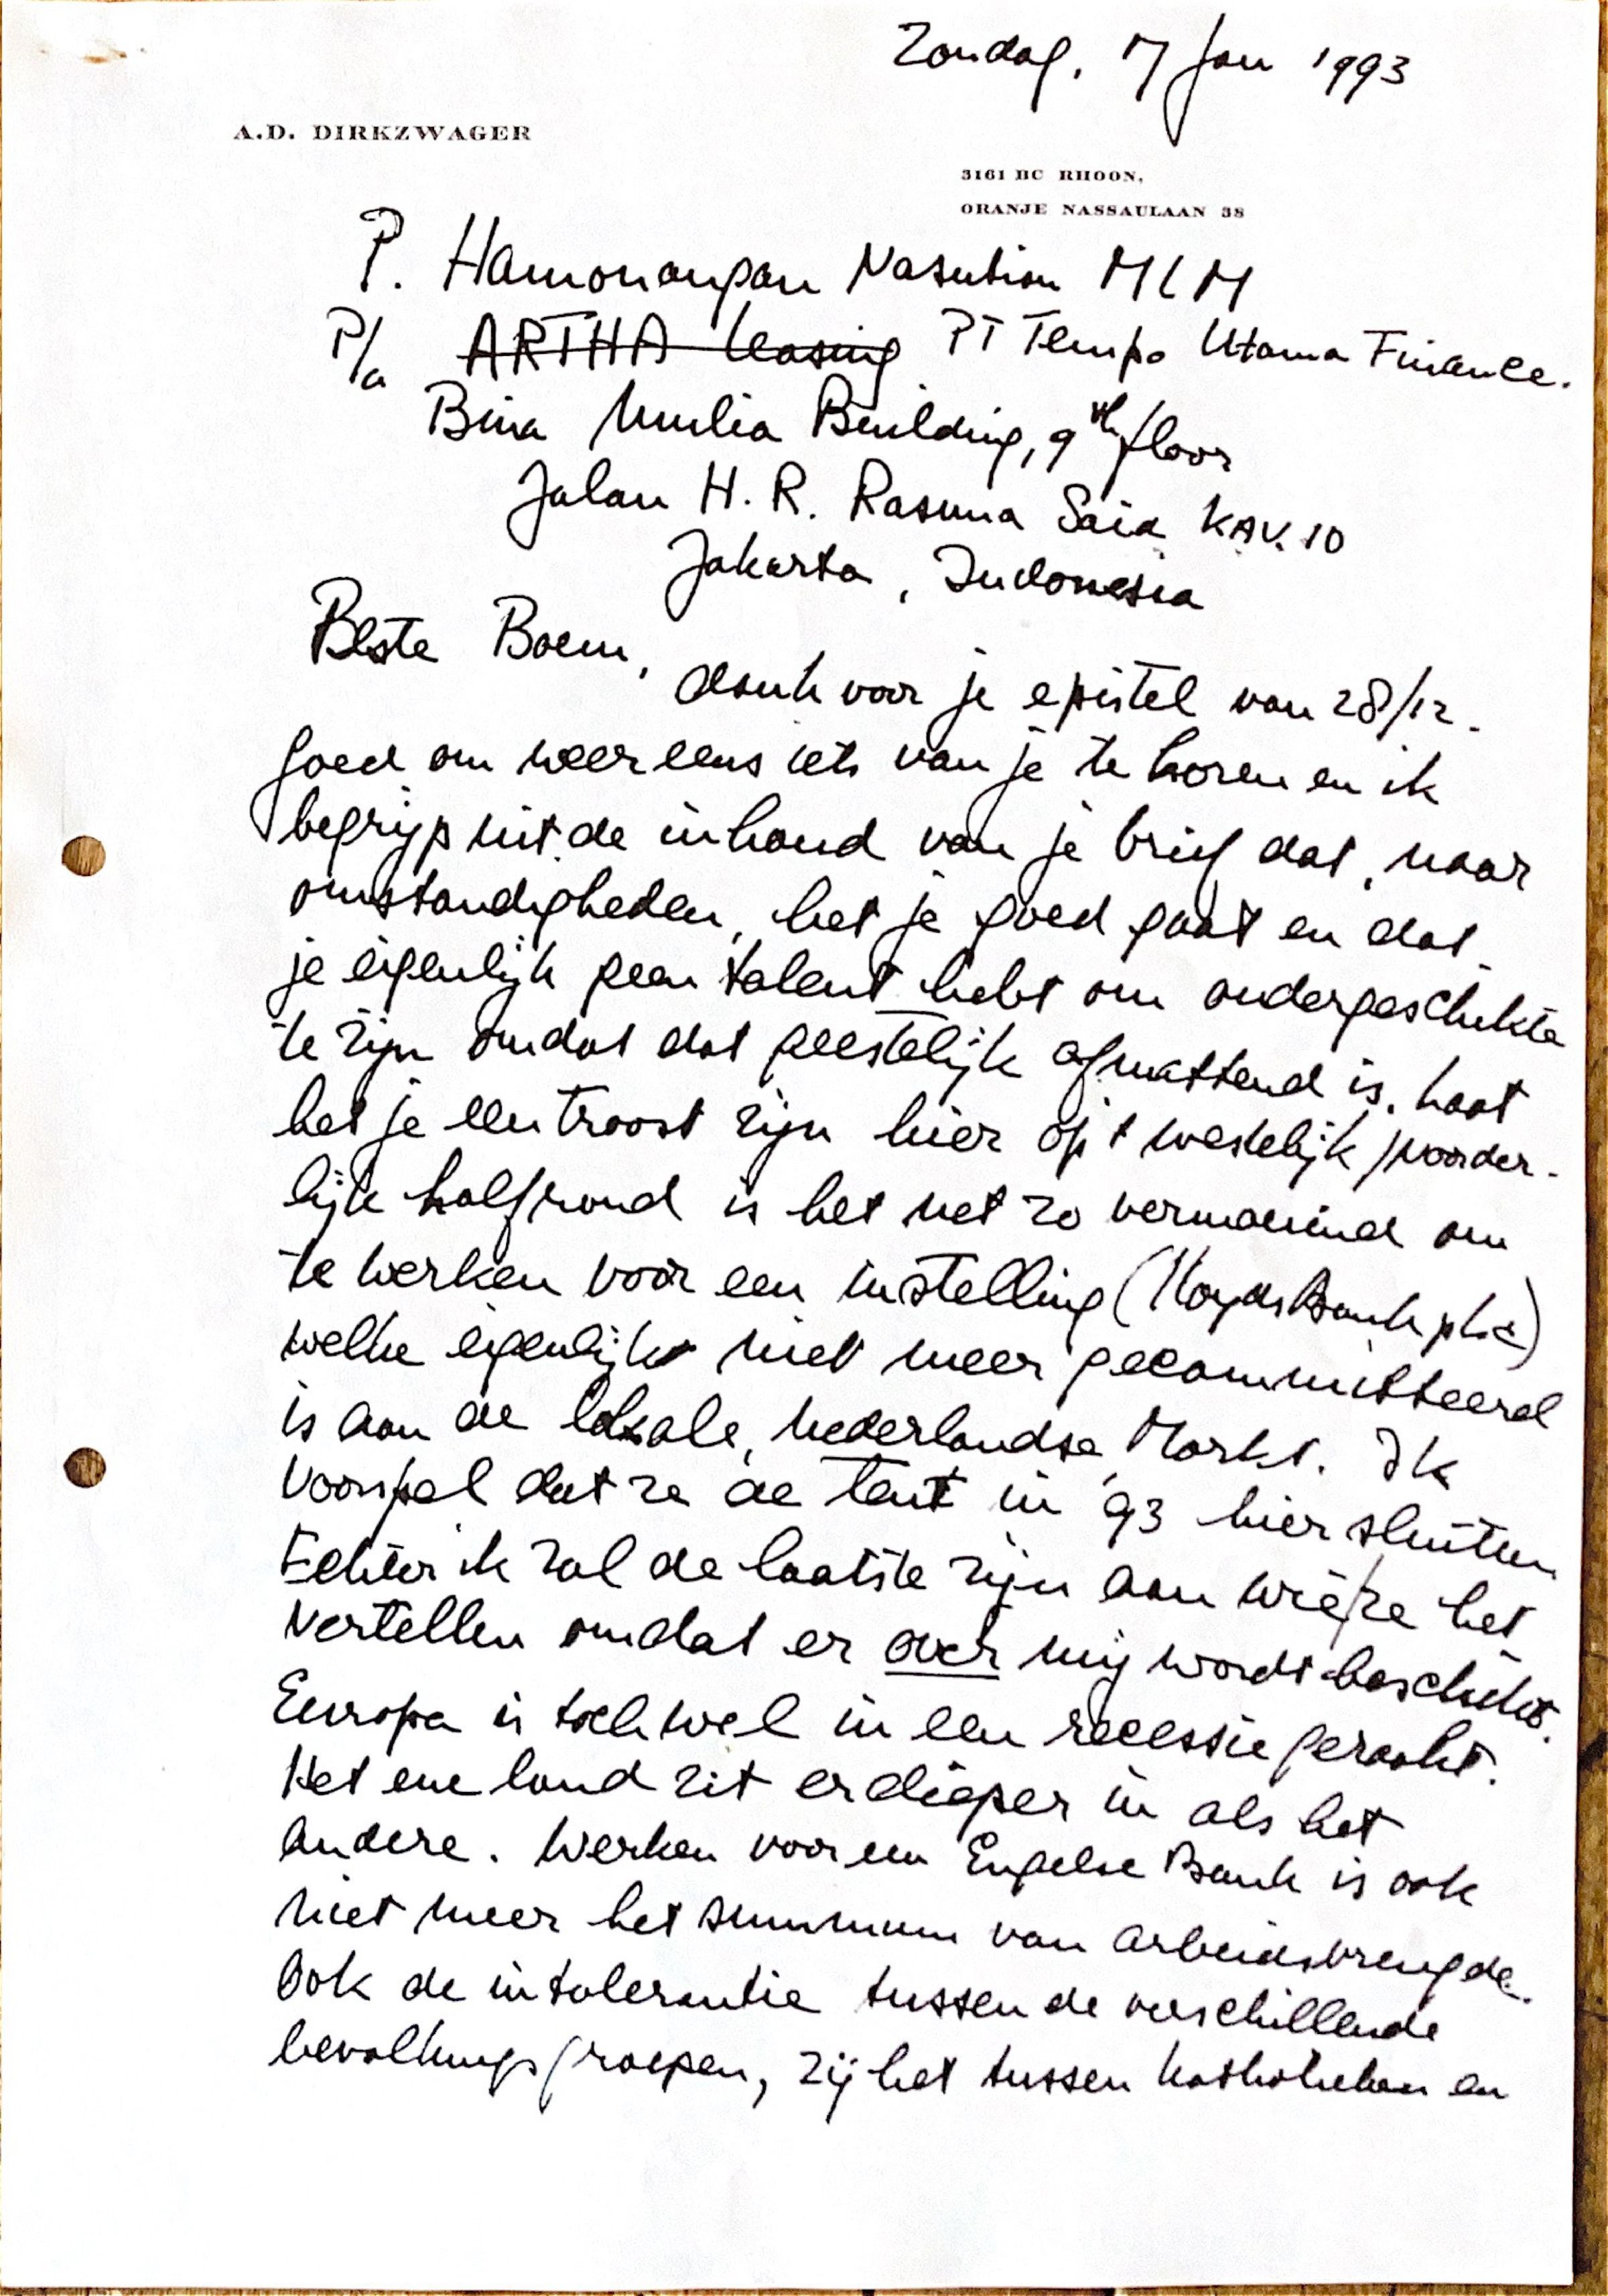 Zondag, 17 Jan 1993
A.D. DIRKZWAGER
3161 BC RHOON,
ORANJE NASSAULAAN 38
P. Hamonangan Nasution MLM
P/a ARTHA leasing PT Tempo Utama Finance.
Bina Mulia Building, 9th floor
Jalan H. R. Rasuna Said KAV. 10
Jakarta, Indonesia
Beste Boem,
dank voor je epistel van 28/12.
Goed om weer eens iets van je te horen en ik
begrijp uit de inhoud van je brief dat, naar
omstandigheden, het je goed gaat en dat
je eigenlijk geen talent hebt om ondergeschikte
te zijn omdat dat geestelijk afmattend is. Laat
het je een troost zijn hier op 't westelijk/noorder-
lijk halfrond is het net zo vermoeiend om
te werken voor een instelling (Lloyds Bank plc)
welke eigenlijk niet meer gecommitteerd
is aan de lokale, nederlandse, Markt. Ik
voorspel dat ze de tent in '93 hier sluiten
Echter ik zal de laatste zijn aan wie ze het
vertellen omdat er over mij wordt beschikt.
Europa is toch wel in een recessie geraakt.
Het ene land zit er dieper in als het
andere. Werken voor een Engelse Bank is ook
niet meer het summum van arbeidsvreugde.
Ook de intolerantie tussen de verschillende
bevolkingsgroepen, zij het tussen katholieken en